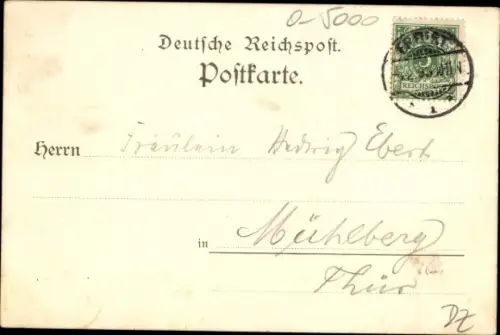 0-5000
Deutsche Reichspost.
Postkarte.
5
REICHSPOST
Herrn Fräulein Hedwig Ebert
in Mühlberg
Thür
DZ